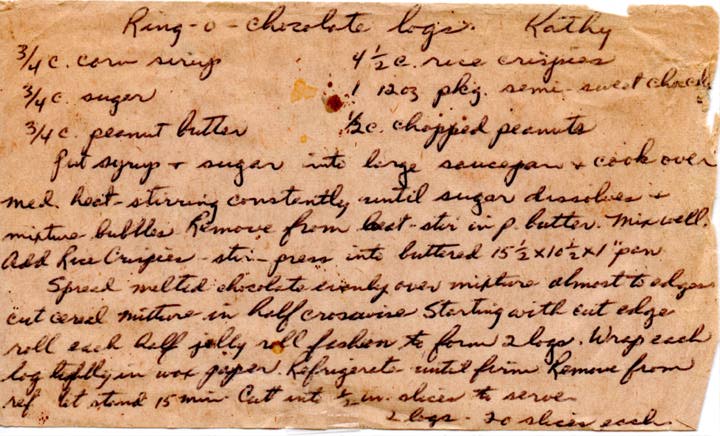 Ring-o-chocolate logs. Kathy
3/4 c. corn sirup 4 1/2 c. rice crispies
3/4 c. sugar 1 12oz pkg. semi-sweet chocola
3/4 c. peanut butter 1/2 c. chopped peanuts
Put syrup + sugar into large saucepan + cook over
med. heat-stirring constantly until sugar dissolves +
mixture bubbles Remove from heat-stir in p. butter. Mix well.
Add Rice Crispies-stir-press into buttered 15 1/2 x 10 1/2 x 1" pan
Spread melted chocolate evenly over mixture almost to edges
cut cereal mixture in half crosswise Starting with cut edge
roll each half jelly roll fashion to form 2 logs. Wrap each
log tightly in wax paper. Refrigerate until firm Remove from
ref let stand 15 min Cut into 1/2 in. slices to serve
2 logs - 20 slices each